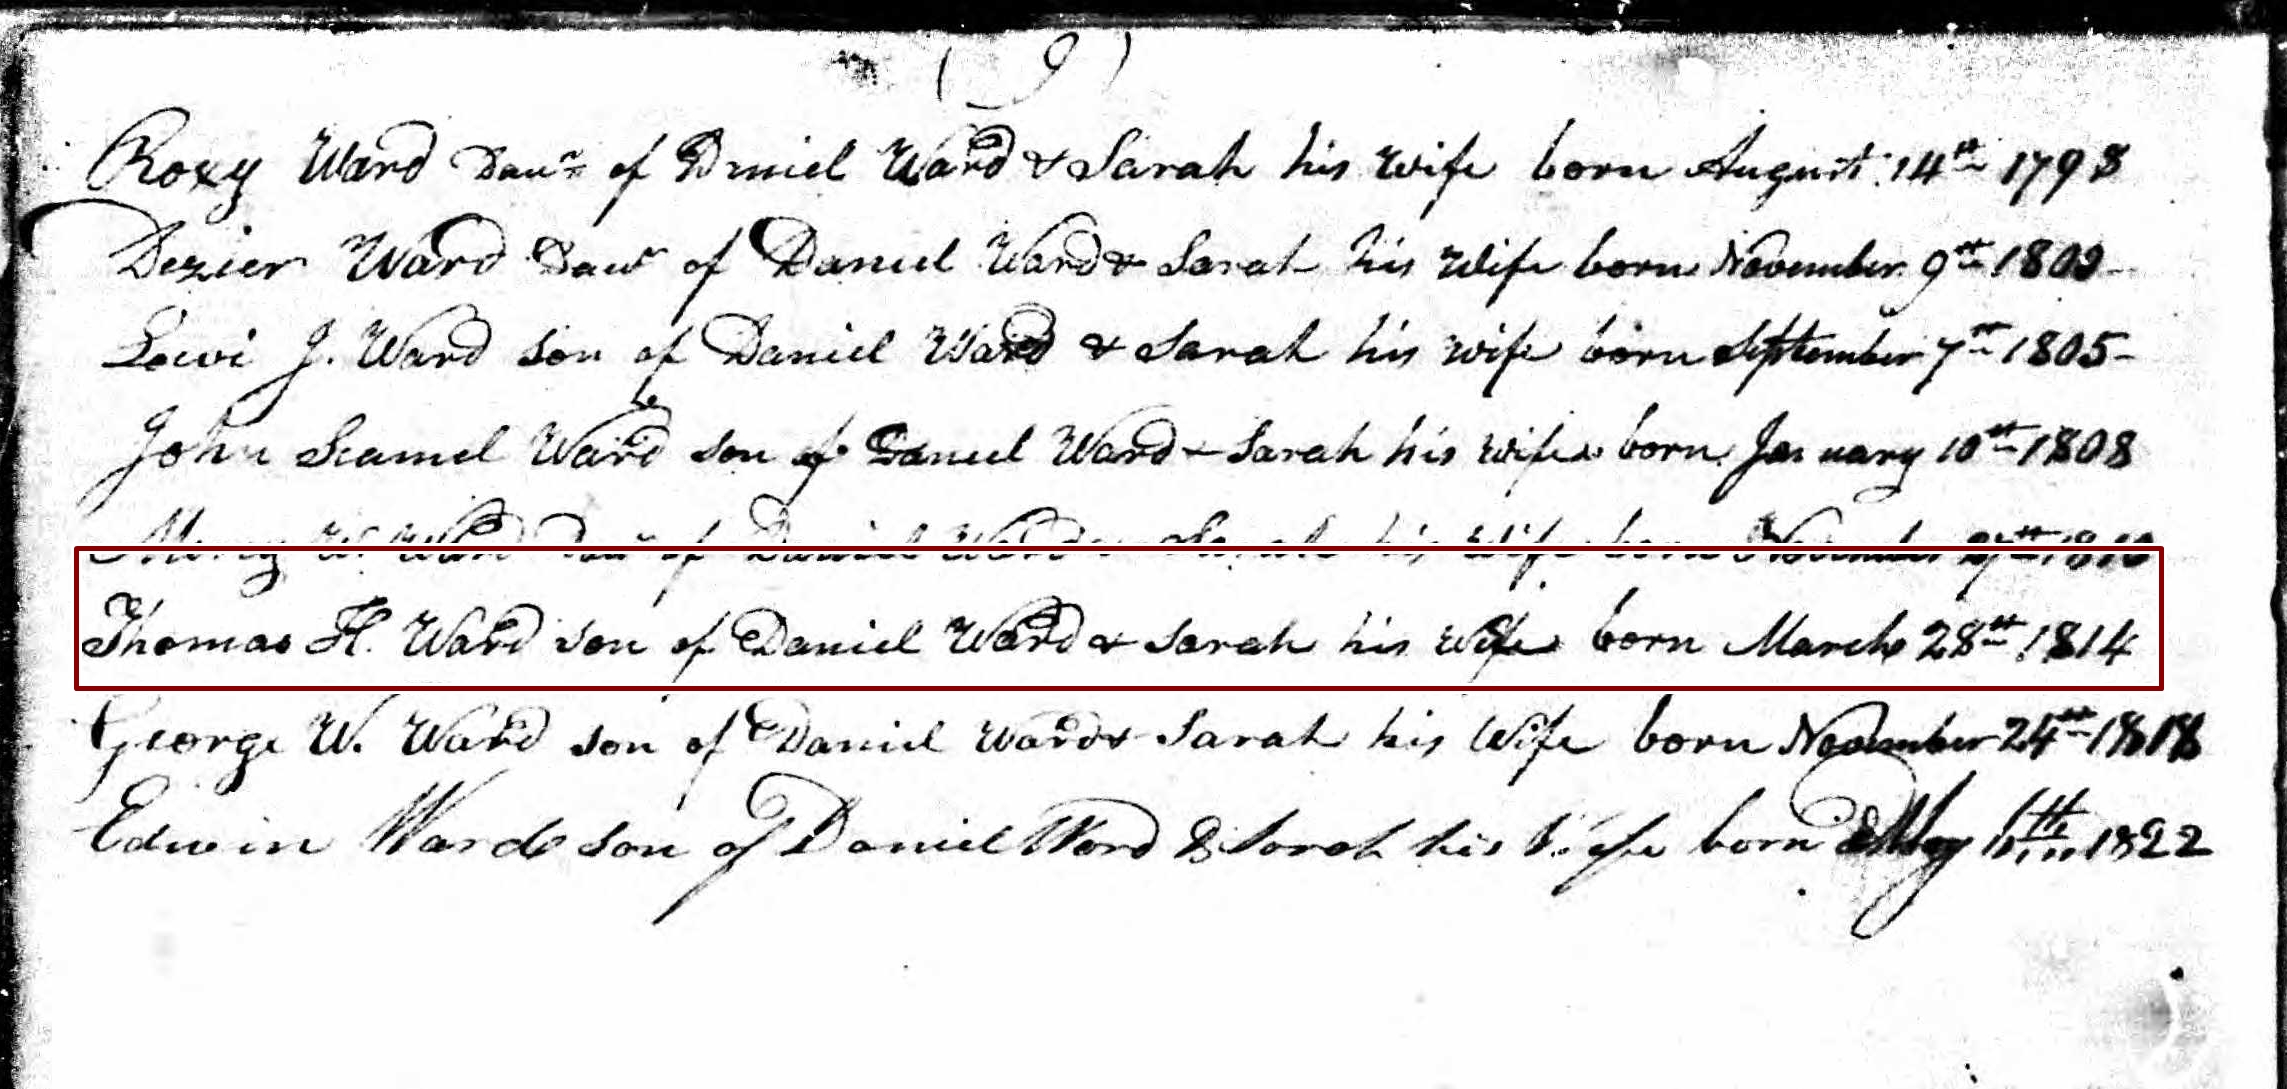 ( 9 )
Roxy Ward Daur of Daniel Ward & Sarah his wife born August 14th 1798
Dezier Ward Daur of Daniel Ward & Sarah his Wife born November 9th 1802
Levi J. Ward son of Daniel Ward & Sarah his wife born September 7th 1805
John Seamel Ward son of Daniel Ward & Sarah his wife born January 10th 1808
W. Ward Daur of Daniel Ward & Sarah his Wife born November 1810
Thomas H. Ward son of Daniel Ward & Sarah his Wife born March 28th 1814
George W. Ward son of Daniel Ward & Sarah his Wife born November 24th 1818
Edwin Ward son of Daniel Ward & Sarah his Wife born May 1822